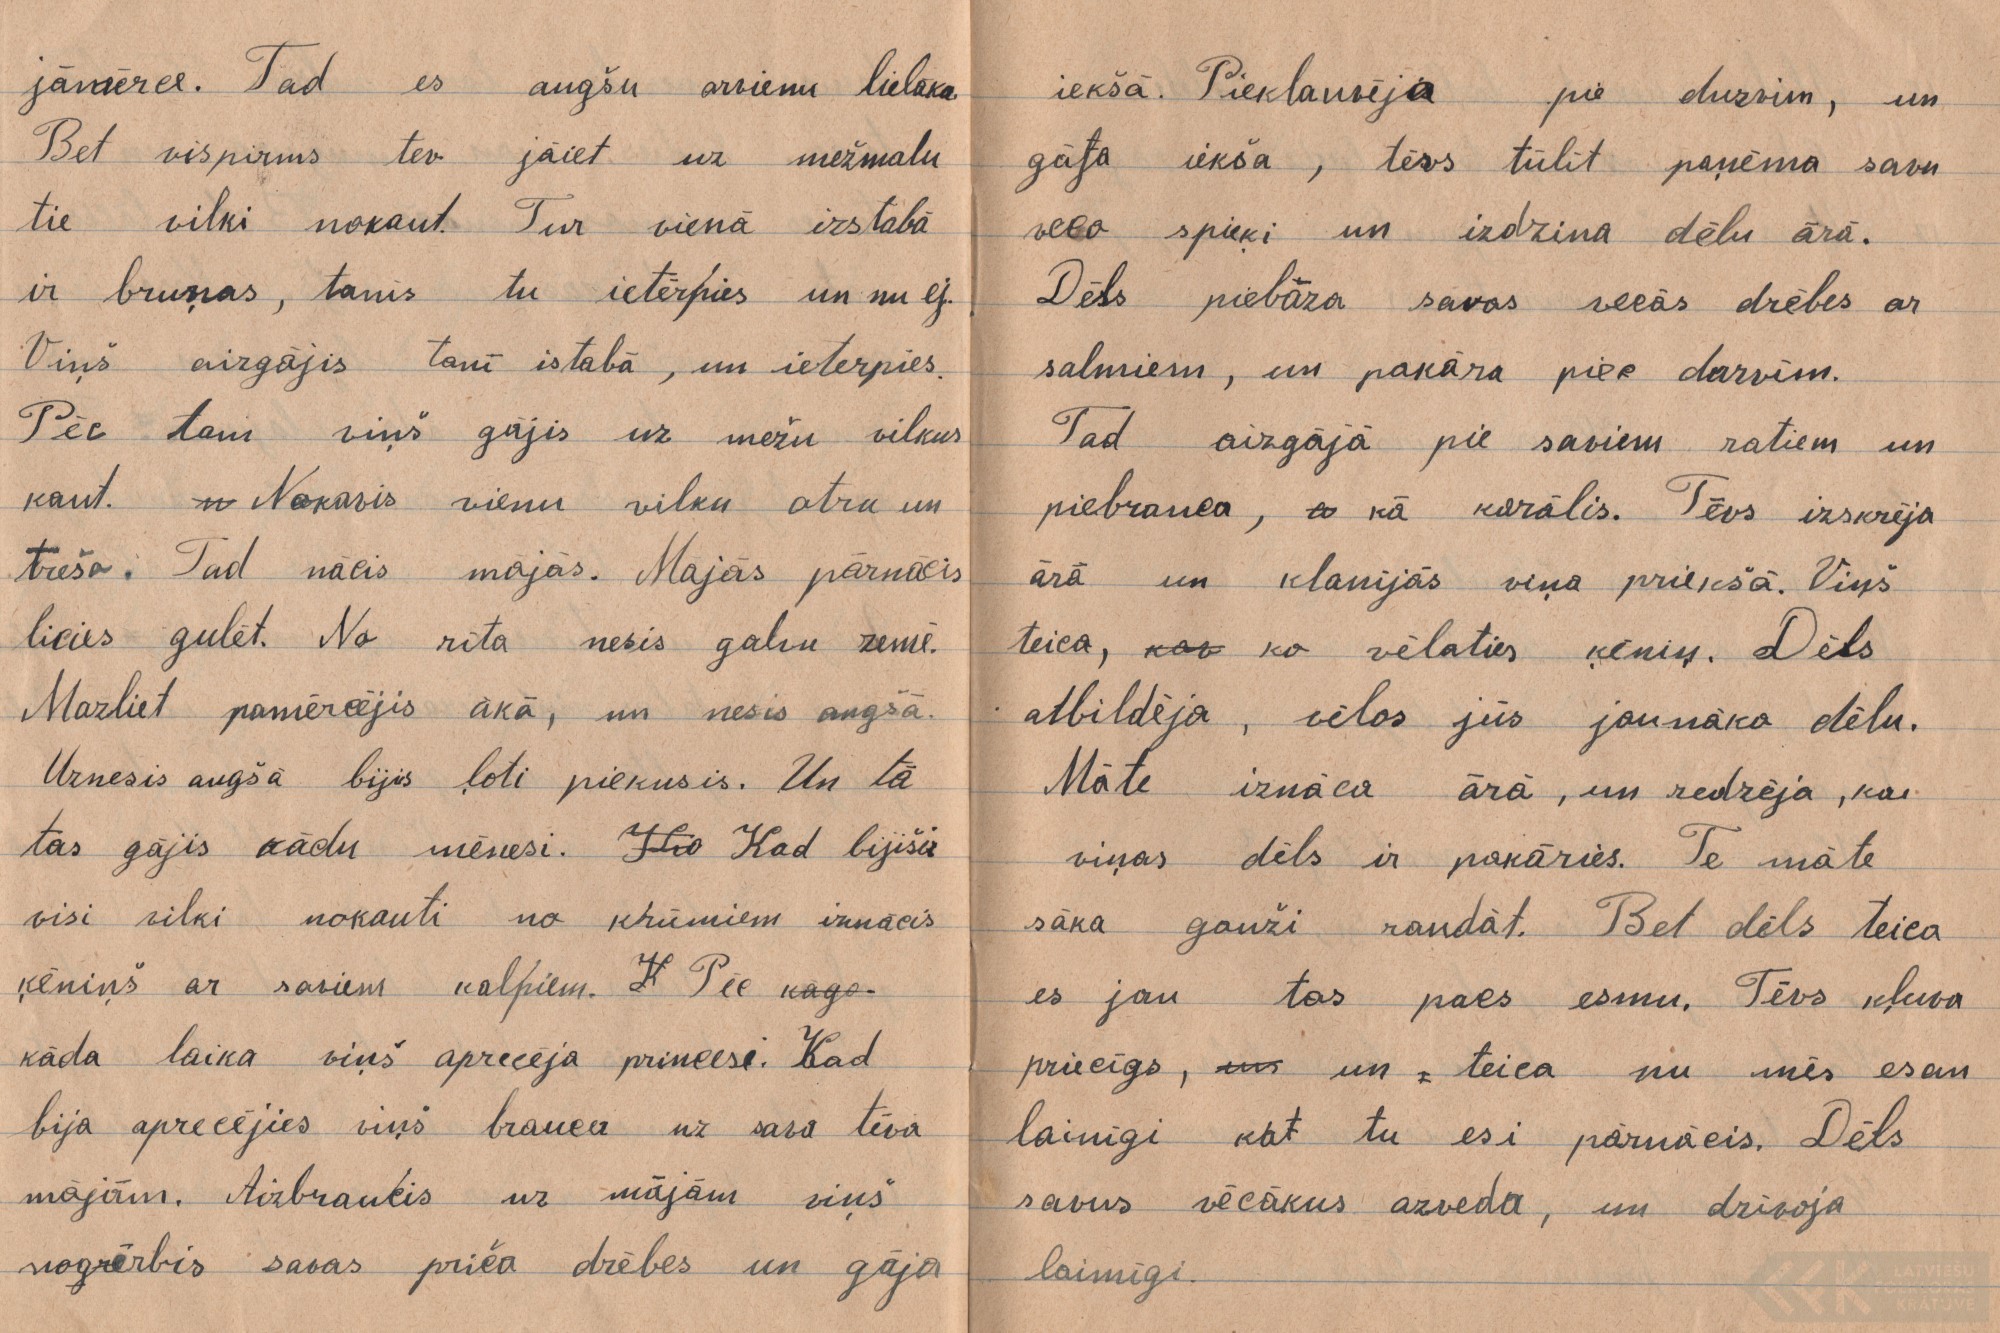 jāmērcē. Tad es augšu arvienu lielāka
Bet vispirms tev jāiet uz mežmalu
tie vilki nokaut. Tur vienā izstabā
ir bruņas, tanīs tu ietērpies un nu ej.
Viņš aizgājis tanī istabā, un ieterpies.
Pēc tam viņš gājis uz mežu vilkus
kaut. Nokavis vienu vilku otru un
treša. Tad nācis mājās. Mājās pārnācis
licies gulēt. No rīta nesis galvu zemē.
Mazliet pamērcējis ākā, un nesis augšā.
Uznesis augšā bijis ļoti piekusis. Un tā
tas gājis kādu mēnesi. Kad bijiši
visi vilki nokauti no krūmiem iznācis
ķēniņš ar saviem kalpiem. Pēc
kāda laika viņš aprecēja princesi. Kad
bija aprecējies viņš brauca uz sava tēva
mājām. Aizbraucis uz mājām viņš
nogrērbis savas priča drēbes un gāja
iekšā. Pieklauvēja pie durvim, un
gāja iekša, tēvs tūlīt paņēma savu
veco spieķi un izdzina dēlu ārā.
Dēls piebāza savas vecās drēbes ar
salmiem, un pakāra piee darvīm.
Tad aizgājā pie saviem ratiem un
piebrauca, kā karālis. Tēvs izskrēja
ārā un klanījās viņa priekšā. Viņš
teica, ko vēlaties ķēniņ. Dēls
atbildēja, vēlos jūs jaunāko dēlu.
Māte iznāca ārā, un redzēja, ka
viņas dēls ir pakāries. Te māte
sāka gauži raudāt. Bet dēls teica
es jau tas paes esmu. Tēvs kļuva
priecīgs, un teica nu mēs esan
laimīgi kat tu esi pārnācis. Dēls
savus vēcākus azveda, un dzīvoja
laimīgi.
LATVIEŠU
FOLKLORAS
KRĀTUVE